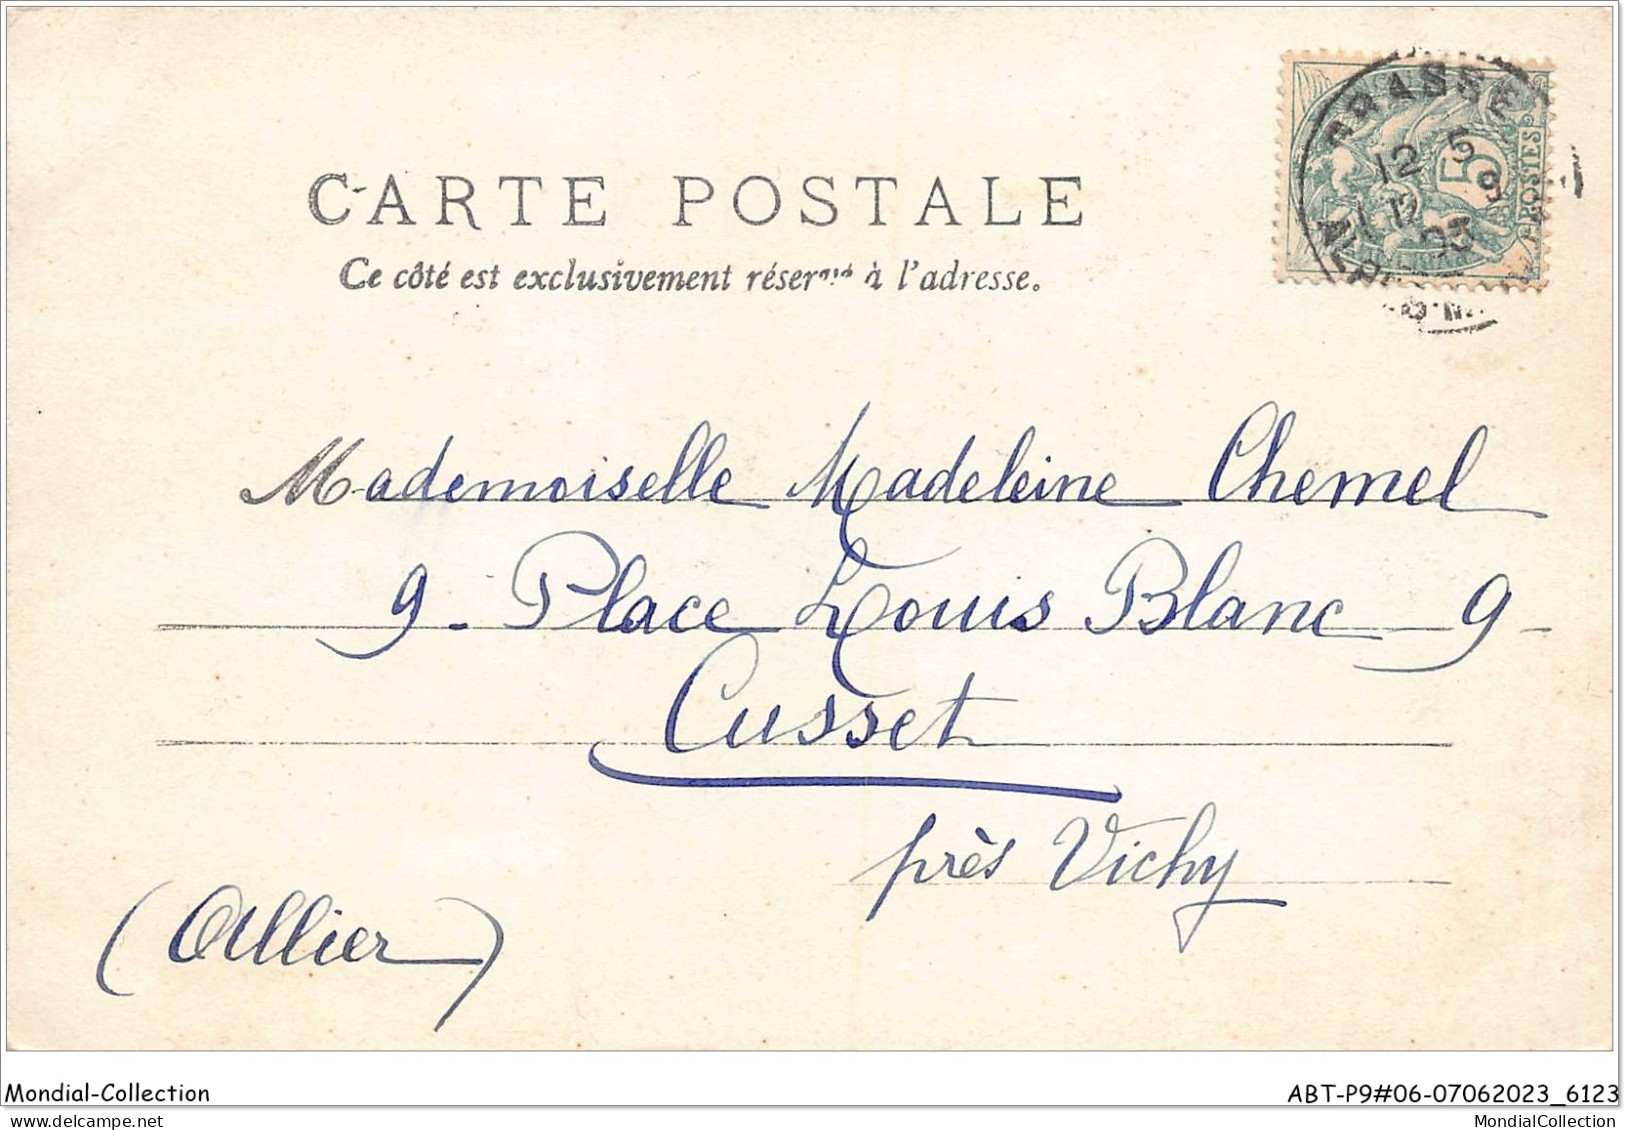 CARTE POSTALE
Ce côté est exclusivement réservé à l'adresse.
GRASSE
12 5
9
03
5
POSTES
Mademoiselle Madeleine Chemel
9 - Place Louis Blanc 9
Cusset
près Vichy
(Allier)
Mondial-Collection
ABT-P9#06-07062023_6123
MondialCollection